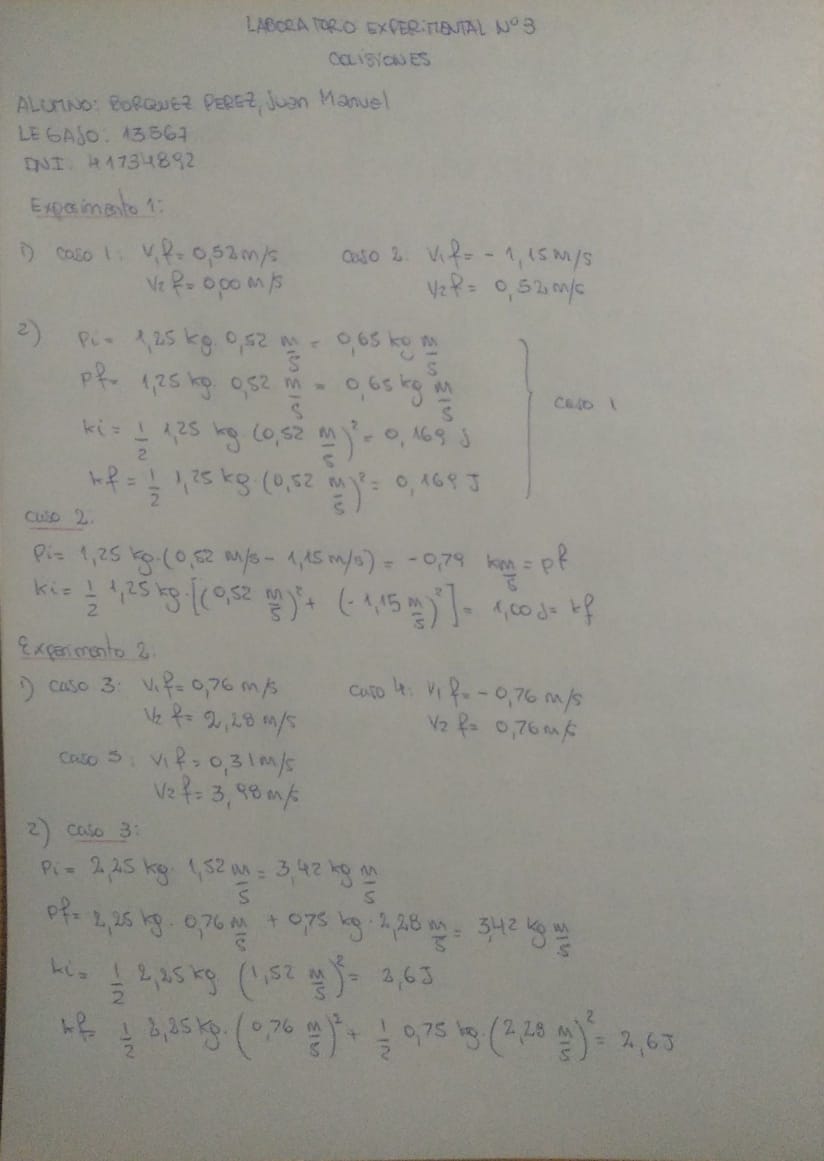 LABORATORIO EXPERIMENTAL Nº3
COLISIONES
ALUMNO: BORQUEZ PEREZ, Juan Manuel
LEGAJO: 13567
DNI: 41734892
Experimento 1:
1) caso 1: V1f = 0,52 m/s caso 2: V1f = - 1,15 m/s
V2f = 0,00 m/s V2f = 0,52 m/s
2) Pi = 1,25 kg. 0,52 m/s = 0,65 kg m/s
Pf = 1,25 kg. 0,52 m/s = 0,65 kg m/s
caso 1
ki = 1/2 1,25 kg. (0,52 m/s)² = 0,169 J
kf = 1/2 1,25 kg. (0,52 m/s)² = 0,169 J
caso 2.
Pi = 1,25 kg. (0,52 m/s - 1,15 m/s) = -0,79 km/s = pf
ki = 1/2 1,25 kg. [(0,52 m/s)² + (-1,15 m/s)²] = 1,00 J = kf
Experimento 2.
1) caso 3: V1f = 0,76 m/s caso 4: V1f = - 0,76 m/s
V2f = 2,28 m/s V2f = 0,76 m/s
caso 5: V1f = 0,31 m/s
V2f = 3,98 m/s
2) caso 3:
Pi = 2,25 kg. 1,52 m/s = 3,42 kg m/s
Pf = 2,25 kg. 0,76 m/s + 0,75 kg. 2,28 m/s = 3,42 kg m/s
ki = 1/2 2,25 kg (1,52 m/s)² = 2,6 J
kf = 1/2 2,25 kg. (0,76 m/s)² + 1/2 0,75 kg. (2,28 m/s)² = 2,6 J